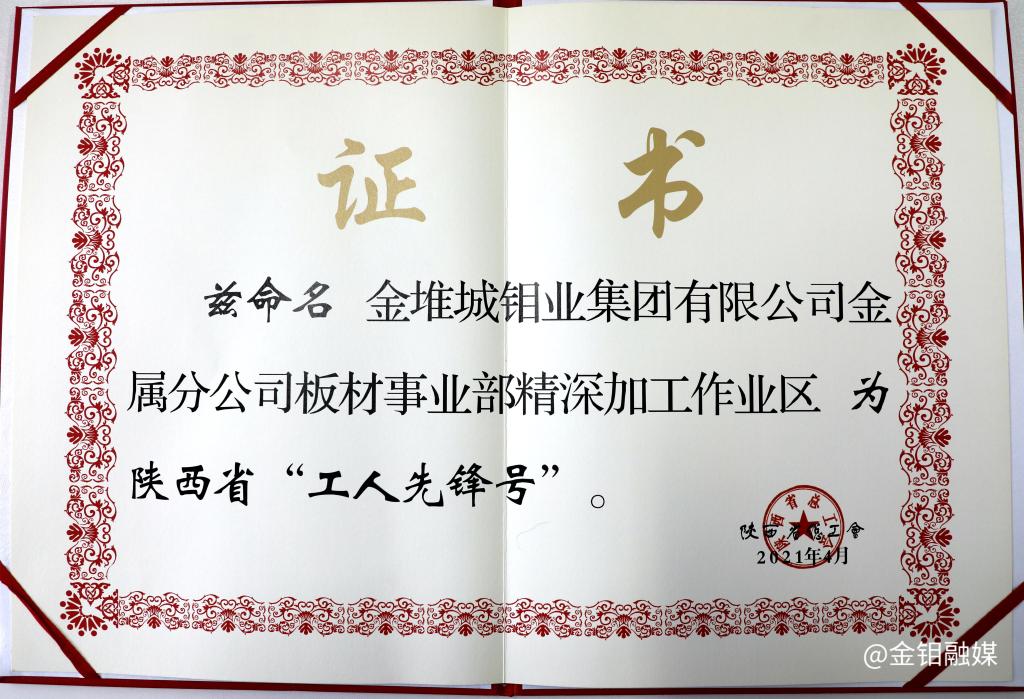 证书
兹命名 金堆城钼业集团有限公司金
属分公司板材事业部精深加工作业区 为
陕西省“工人先锋号”。
陕西省总工會
2021年4月
陕西省总工会
@金钼融媒